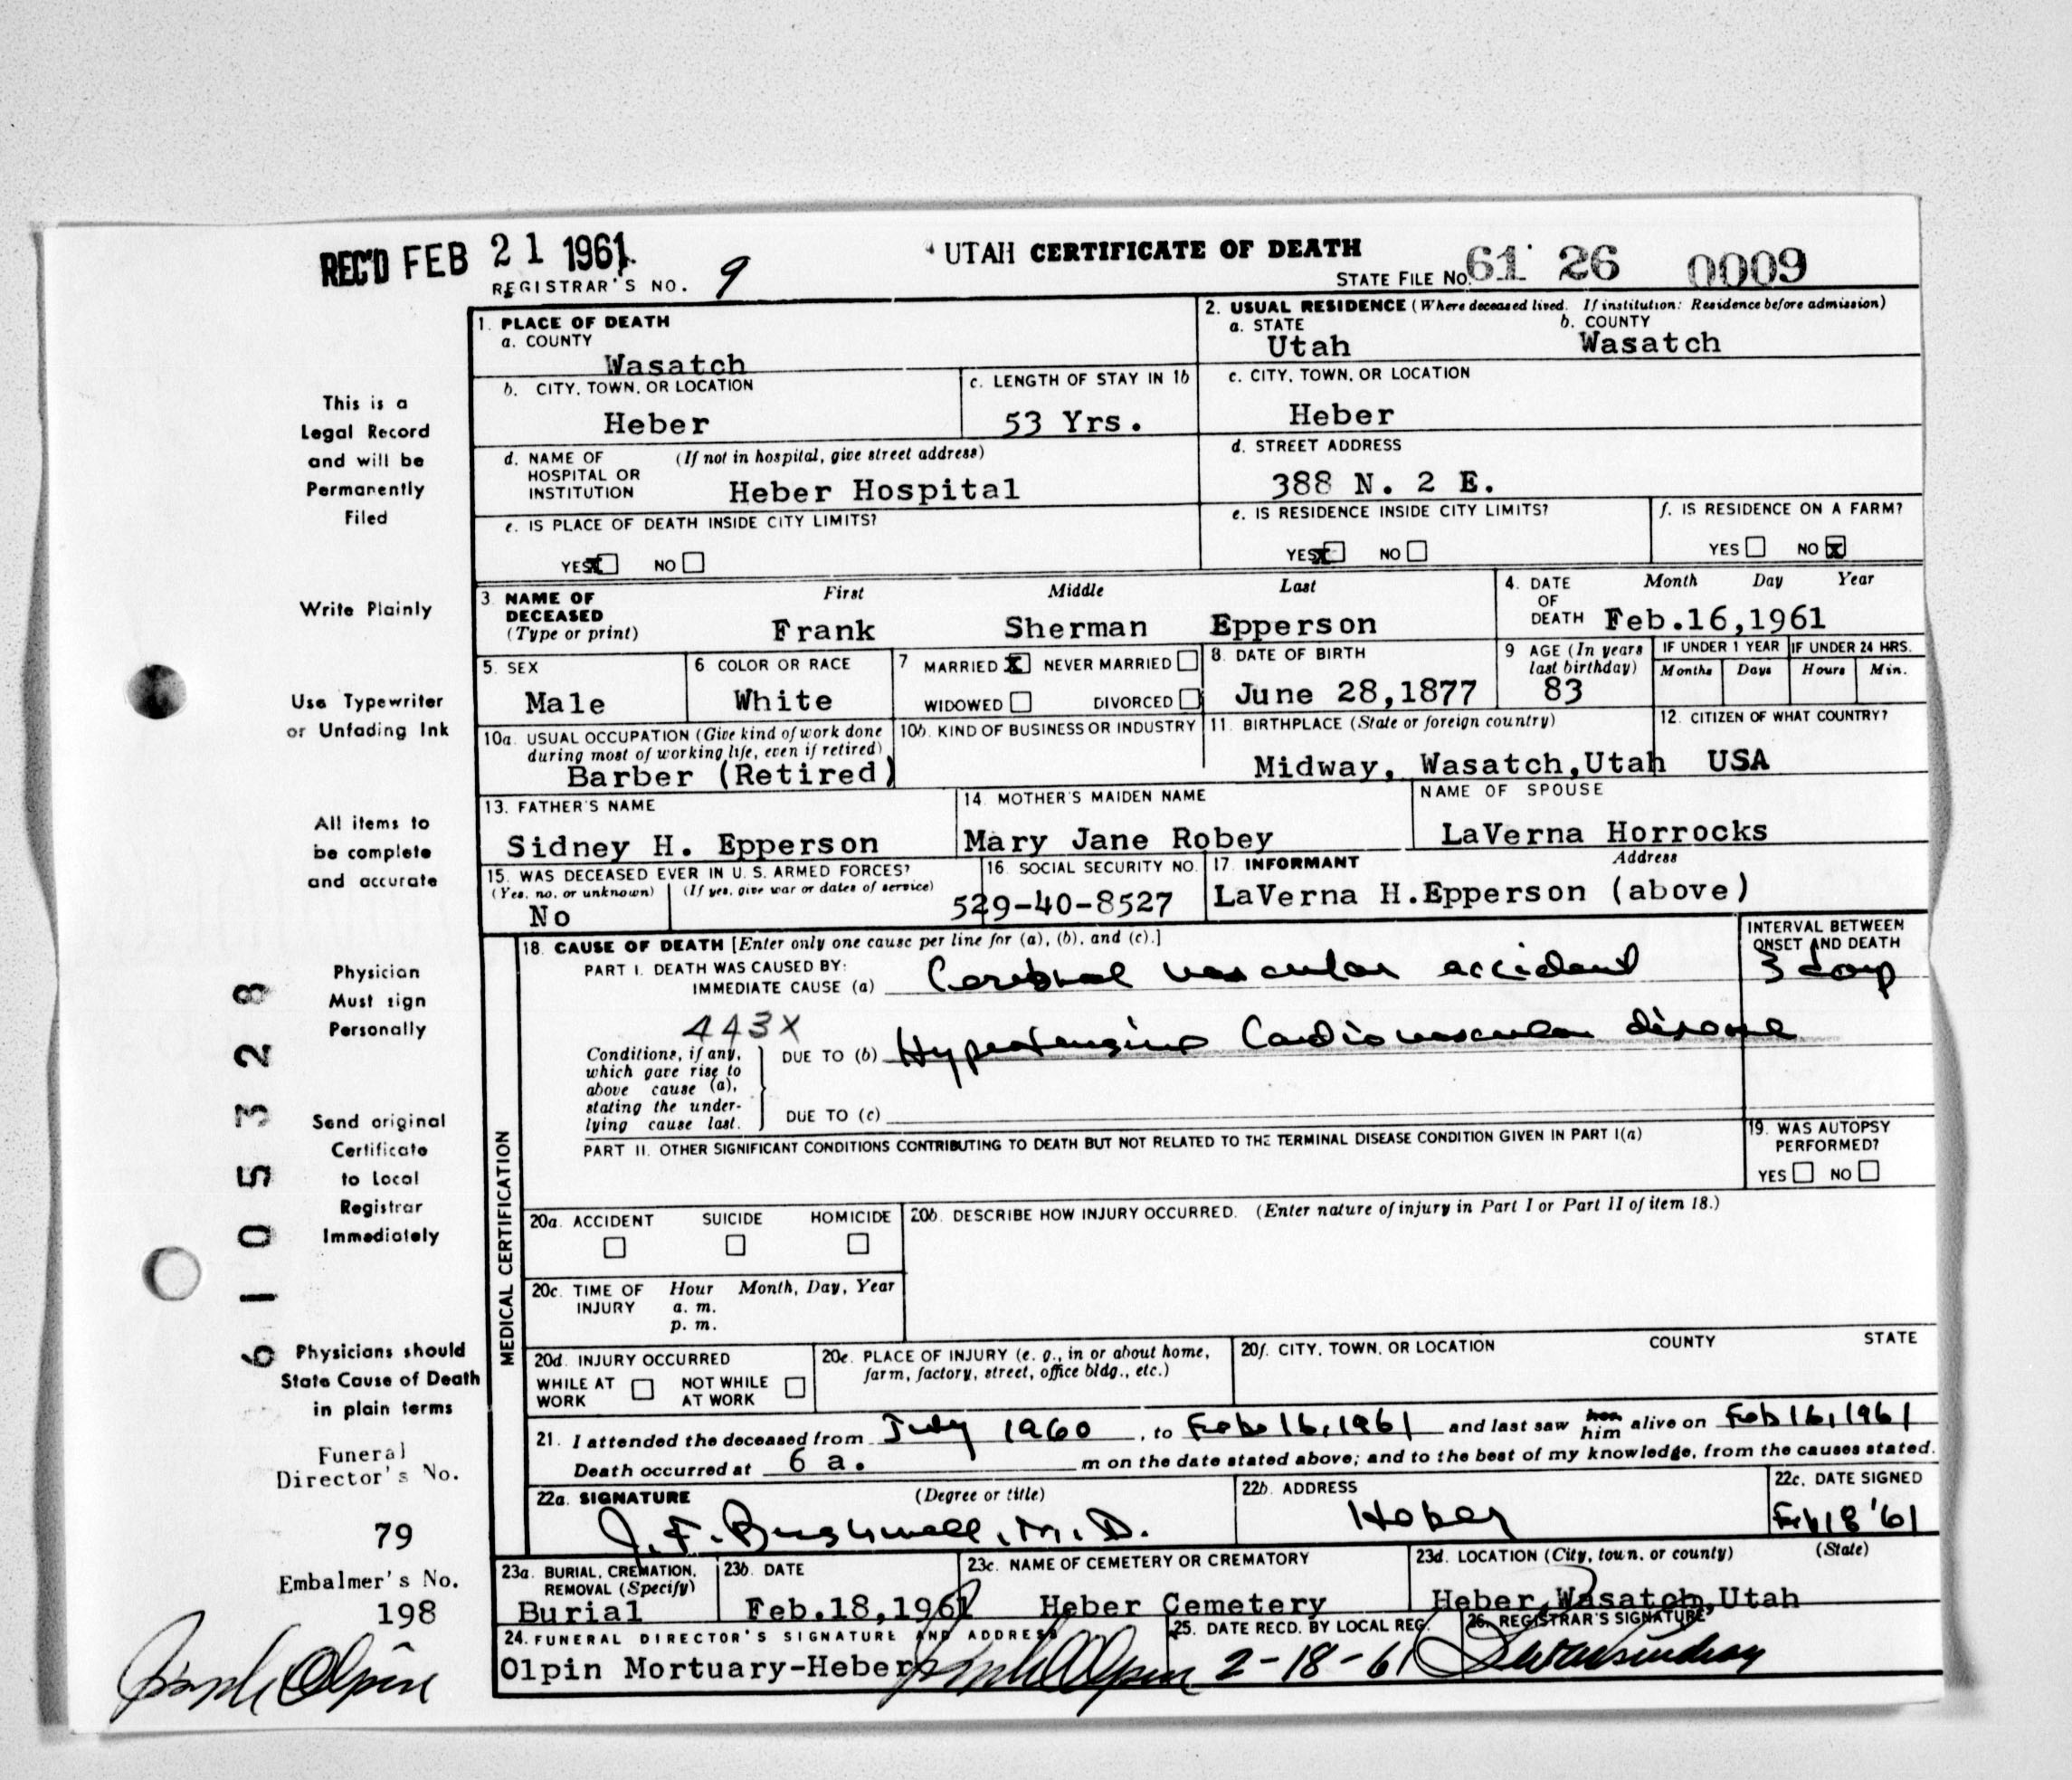 REC'D FEB 21 1961
UTAH CERTIFICATE OF DEATH
REGISTRAR'S NO. 9
STATE FILE NO. 61 26 0009
This is a
Legal Record
and will be
Permanently
Filed
Write Plainly
Use Typewriter
or Unfading Ink
All items to
be complete
and accurate
Physician
Must sign
Personally
Send original
Certificate
to Local
Registrar
Immediately
Physicians should
State Cause of Death
in plain terms
Funeral
Director's No.
79
Embalmer's No.
198
6105328
1. PLACE OF DEATH
a. COUNTY
Wasatch
2. USUAL RESIDENCE (Where deceased lived. If institution: Residence before admission)
a. STATE b. COUNTY
Utah Wasatch
b. CITY, TOWN, OR LOCATION
Heber
c. LENGTH OF STAY IN 1b
53 Yrs.
c. CITY, TOWN, OR LOCATION
Heber
d. NAME OF (If not in hospital, give street address)
HOSPITAL OR
INSTITUTION Heber Hospital
d. STREET ADDRESS
388 N. 2 E.
e. IS PLACE OF DEATH INSIDE CITY LIMITS?
YES X NO
e. IS RESIDENCE INSIDE CITY LIMITS?
YES X NO
f. IS RESIDENCE ON A FARM?
YES NO X
3. NAME OF DECEASED (Type or print)
First Middle Last
Frank Sherman Epperson
4. DATE OF DEATH Month Day Year
Feb.16,1961
5. SEX
Male
6 COLOR OR RACE
White
7 MARRIED X NEVER MARRIED
WIDOWED DIVORCED
8. DATE OF BIRTH
June 28,1877
9 AGE (In years last birthday)
83
IF UNDER 1 YEAR
Months Days
IF UNDER 24 HRS.
Hours Min.
10a. USUAL OCCUPATION (Give kind of work done
during most of working life, even if retired)
Barber (Retired)
10b. KIND OF BUSINESS OR INDUSTRY
11. BIRTHPLACE (State or foreign country)
Midway, Wasatch,Utah
12. CITIZEN OF WHAT COUNTRY?
USA
13. FATHER'S NAME
Sidney H. Epperson
14. MOTHER'S MAIDEN NAME
Mary Jane Robey
NAME OF SPOUSE
LaVerna Horrocks
15. WAS DECEASED EVER IN U. S. ARMED FORCES?
(Yes, no, or unknown) (If yes, give war or dates of service)
No
16. SOCIAL SECURITY NO.
529-40-8527
17. INFORMANT Address
LaVerna H.Epperson (above)
MEDICAL CERTIFICATION
18. CAUSE OF DEATH [Enter only one cause per line for (a), (b), and (c).]
PART I. DEATH WAS CAUSED BY:
IMMEDIATE CAUSE (a) Cerebral vascular accident
INTERVAL BETWEEN
ONSET AND DEATH
3 days
443X
Conditions, if any,
which gave rise to
above cause (a),
stating the under-
lying cause last.
DUE TO (b) Hypertensive Cardiovascular disease
DUE TO (c)
PART II. OTHER SIGNIFICANT CONDITIONS CONTRIBUTING TO DEATH BUT NOT RELATED TO THE TERMINAL DISEASE CONDITION GIVEN IN PART I(a)
19. WAS AUTOPSY
PERFORMED?
YES NO
20a. ACCIDENT SUICIDE HOMICIDE
20b. DESCRIBE HOW INJURY OCCURRED. (Enter nature of injury in Part I or Part II of item 18.)
20c. TIME OF INJURY Hour Month, Day, Year
a. m.
p. m.
20d. INJURY OCCURRED
WHILE AT WORK NOT WHILE AT WORK
20e. PLACE OF INJURY (e. g., in or about home,
farm, factory, street, office bldg., etc.)
20f. CITY, TOWN, OR LOCATION COUNTY STATE
21. I attended the deceased from July 1960, to Feb. 16, 1961 and last saw her him alive on Feb 16, 1961
Death occurred at 6 a. m on the date stated above; and to the best of my knowledge, from the causes stated.
22a. SIGNATURE (Degree or title)
J. F. Bushnell, M. D.
22b. ADDRESS
Heber
22c. DATE SIGNED
Feb 18 '61
23a. BURIAL, CREMATION,
REMOVAL (Specify)
Burial
23b. DATE
Feb.18,1961
23c. NAME OF CEMETERY OR CREMATORY
Heber Cemetery
23d. LOCATION (City, town, or county) (State)
Heber,Wasatch,Utah
24. FUNERAL DIRECTOR'S SIGNATURE AND ADDRESS
Olpin Mortuary-Heber
25. DATE RECD. BY LOCAL REG.
2-18-61
26. REGISTRAR'S SIGNATURE